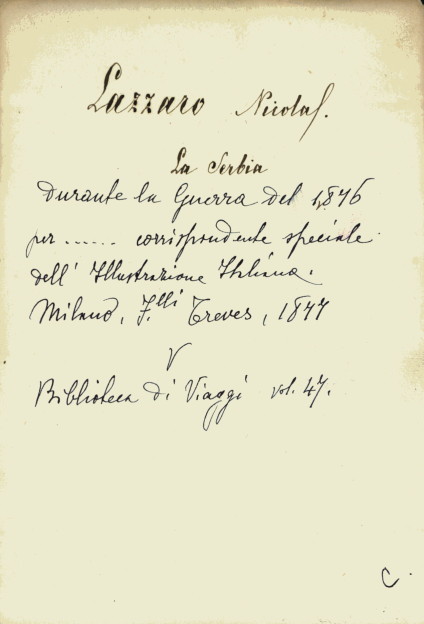 Lazzaro Nicola.
La Serbia
durante la Guerra del 1876
per ...... corrispondente speciale
dell' Illustrazione Italiana.
Milano, F.lli Treves, 1877
V
Biblioteca di Viaggi vol. 47.
C.